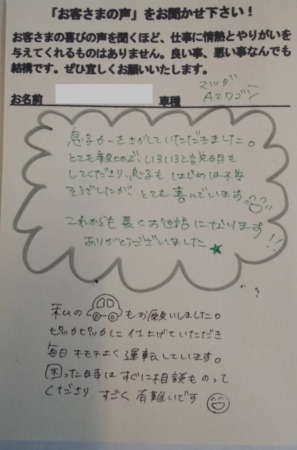 「お客さまの声」をお聞かせ下さい！
お客さまの喜びの声を聞くほど、仕事に情熱とやりがいを
与えてくれるものはありません。良い事、悪い事なんでも
結構です。ぜひ宜しくお願いいたします。
マツダ
お名前 車種 AZワゴン
息子カーをさがしていただきました。
とても親切で、いろいろと説明も
してくださり、息子も はじめは不安
そうでしたが、とても喜んでいます
これからも長くお世話になります!!
ありがとうございました★
私の もお願いしました。
ピッカピッカに仕上げていただき
毎日 キモチよく 運転しています。
困った時は すぐに相談ものって
くださり すごく 有難いです